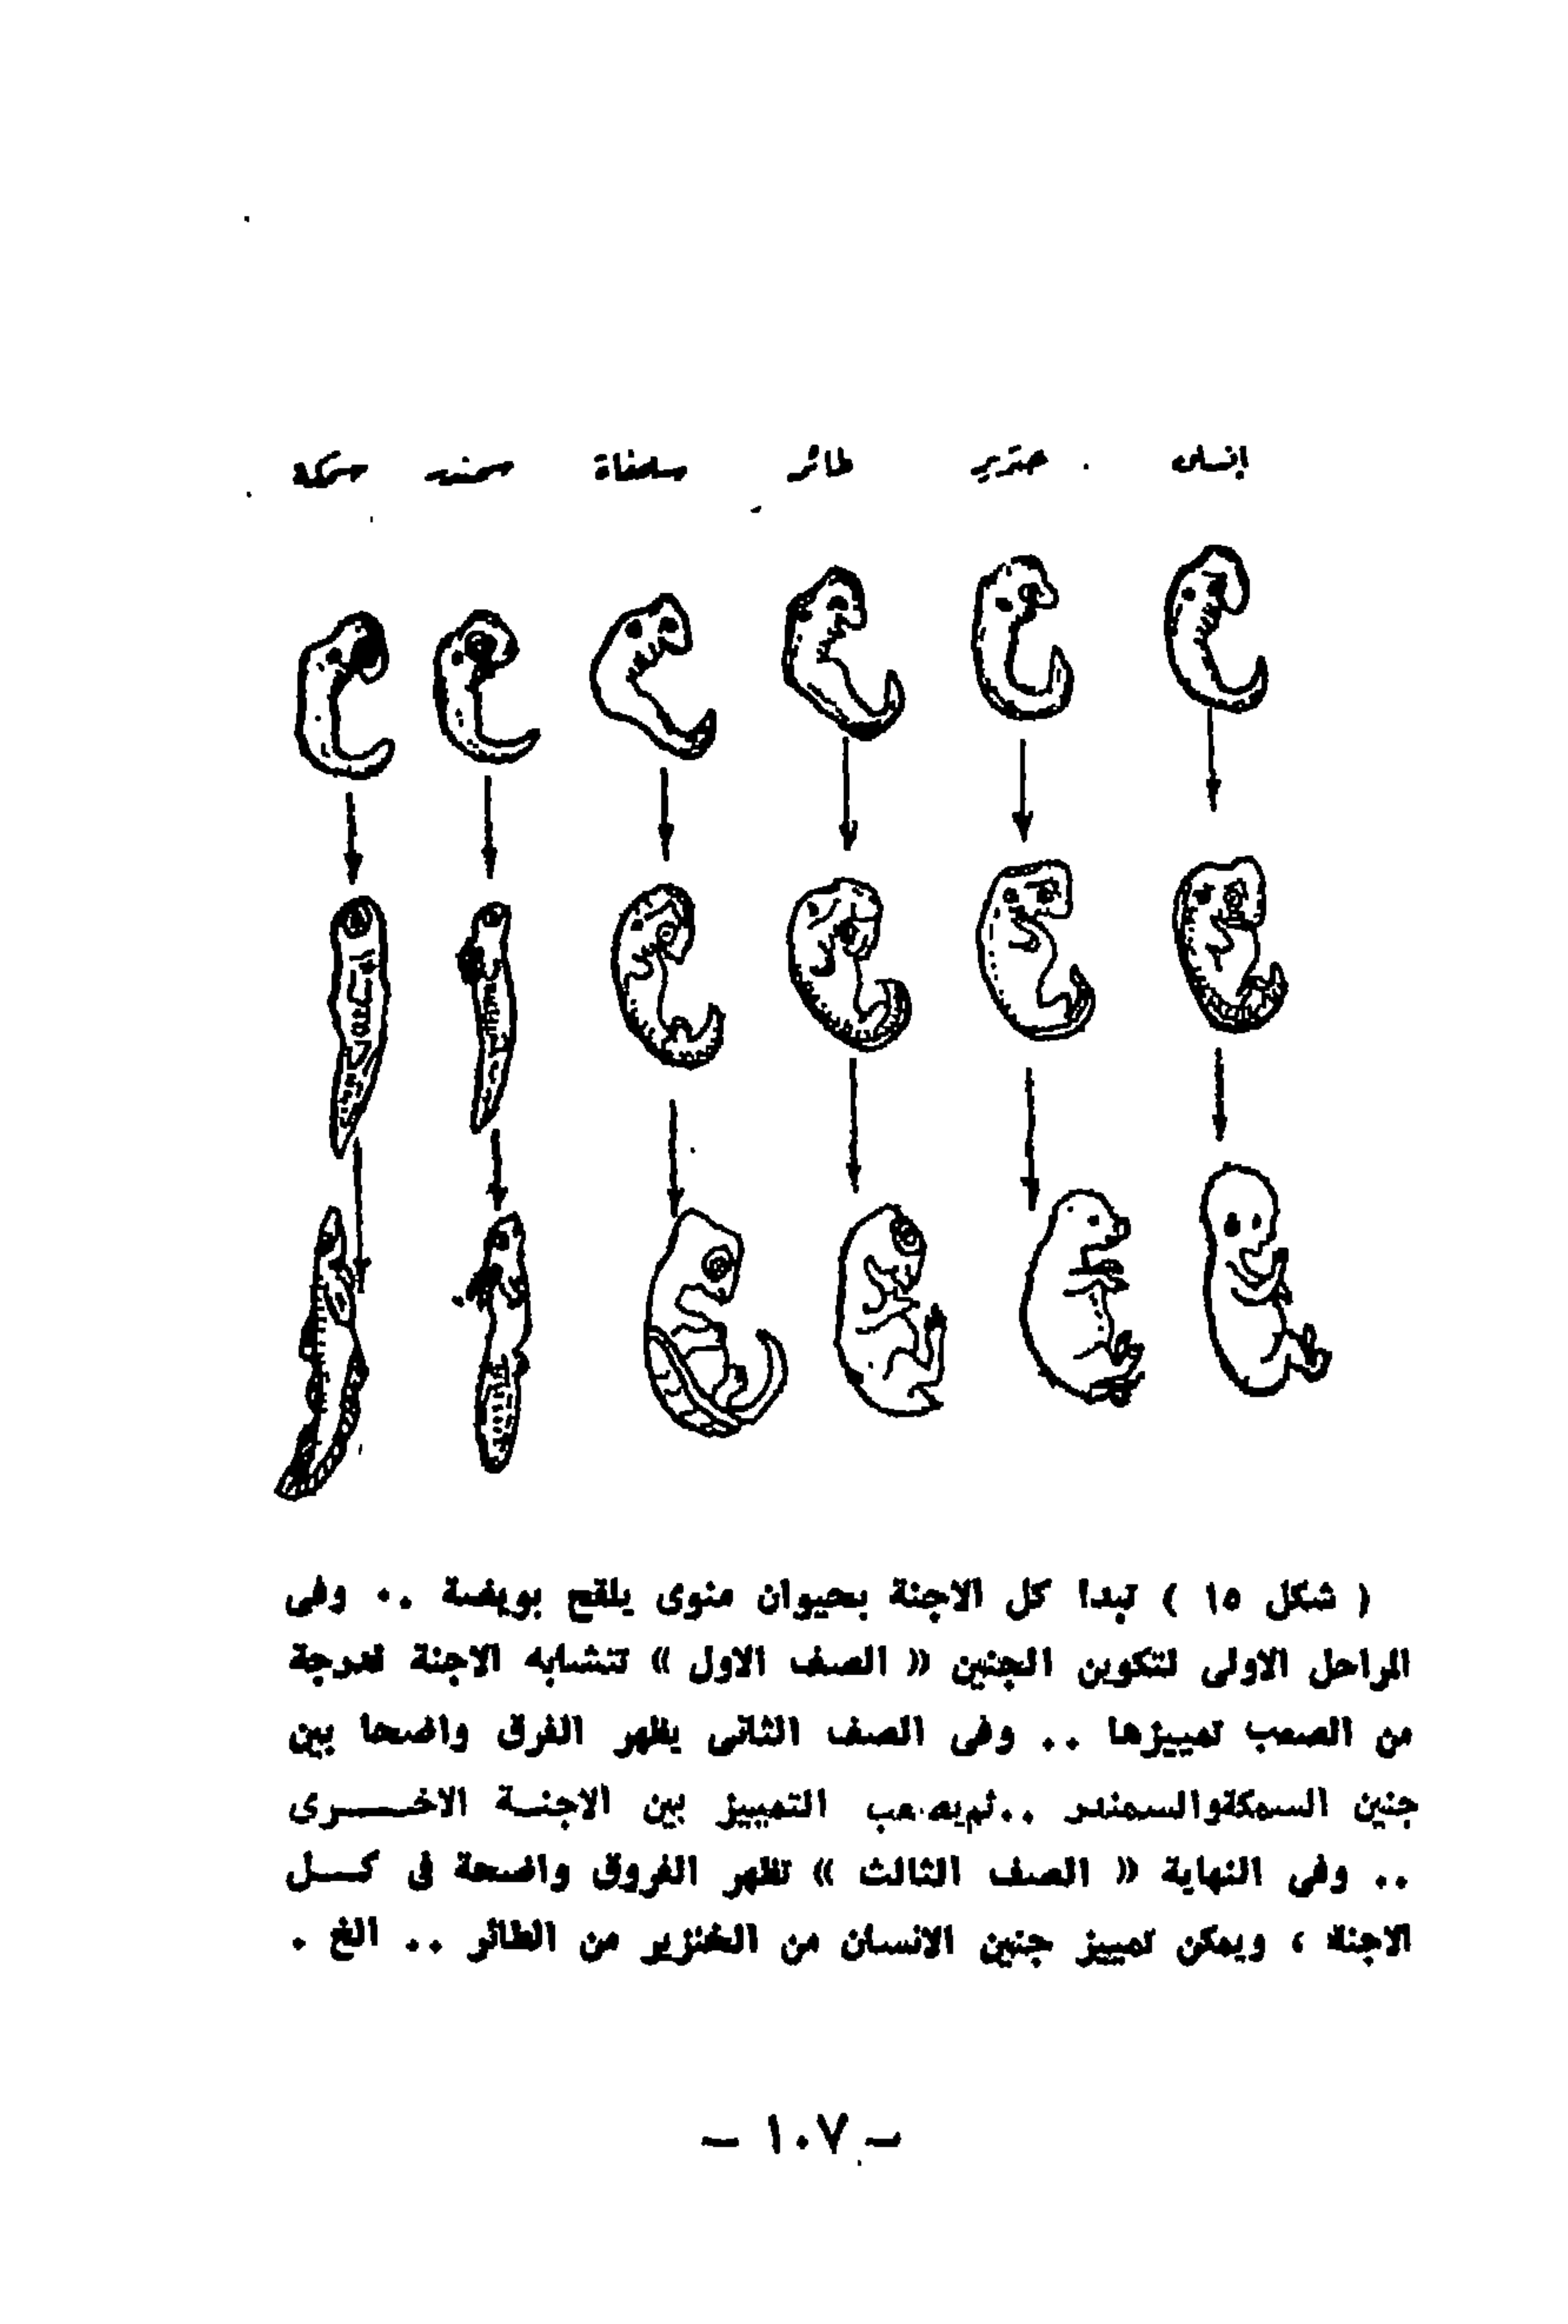 إنسان خنزير طائر سلحفاة سمندر سمكة
( شكل ١٥ ) تبدا كل الاجنة بحيوان منوى يلقح بويضة .. وفى
المراحل الاولى لتكوين الجنين « الصف الاول » تتشابه الاجنة لدرجة
من الصعب تمييزها .. وفى الصف الثانى يظهر الفرق واضحا بين
جنين السمكةوالسمندر ..ثم يصعب التمييز بين الاجنـة الاخـــــرى
.. وفى النهاية « الصف الثالث » تظهر الفروق واضحة فى كــل
الاجنة ، ويمكن تمييز جنين الانسان من الخنزير من الطائر .. الخ .
— ١٠٧ —